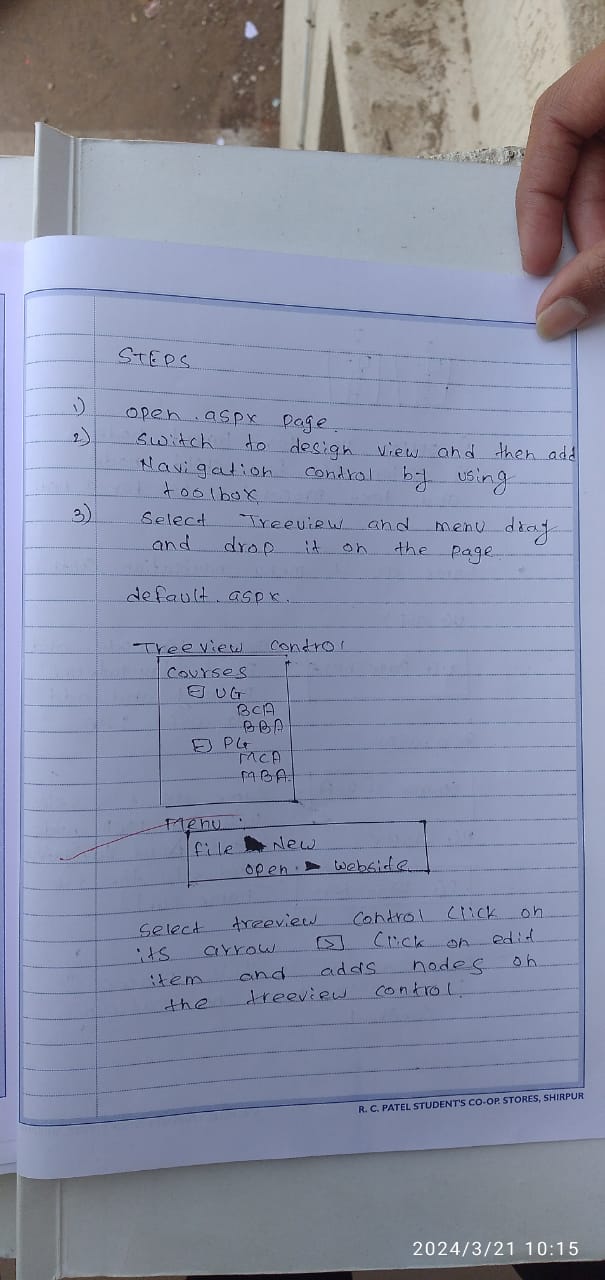 STEPS
1) open .aspx page.
2) switch to design view and then add
Navigation control by using
toolbox
3) Select Treeview and menu drag
and drop it on the page
default.aspx.
Treeview control
Courses
UG
BCA
BBA
PG
MCA
MBA
Menu:
file ▶ New
open. ▶ website
Select treeview control click on
its arrow ▷ Click on edit
item and adds nodes on
the treeview control.
R. C. PATEL STUDENT'S CO-OP. STORES, SHIRPUR
2024/3/21 10:15